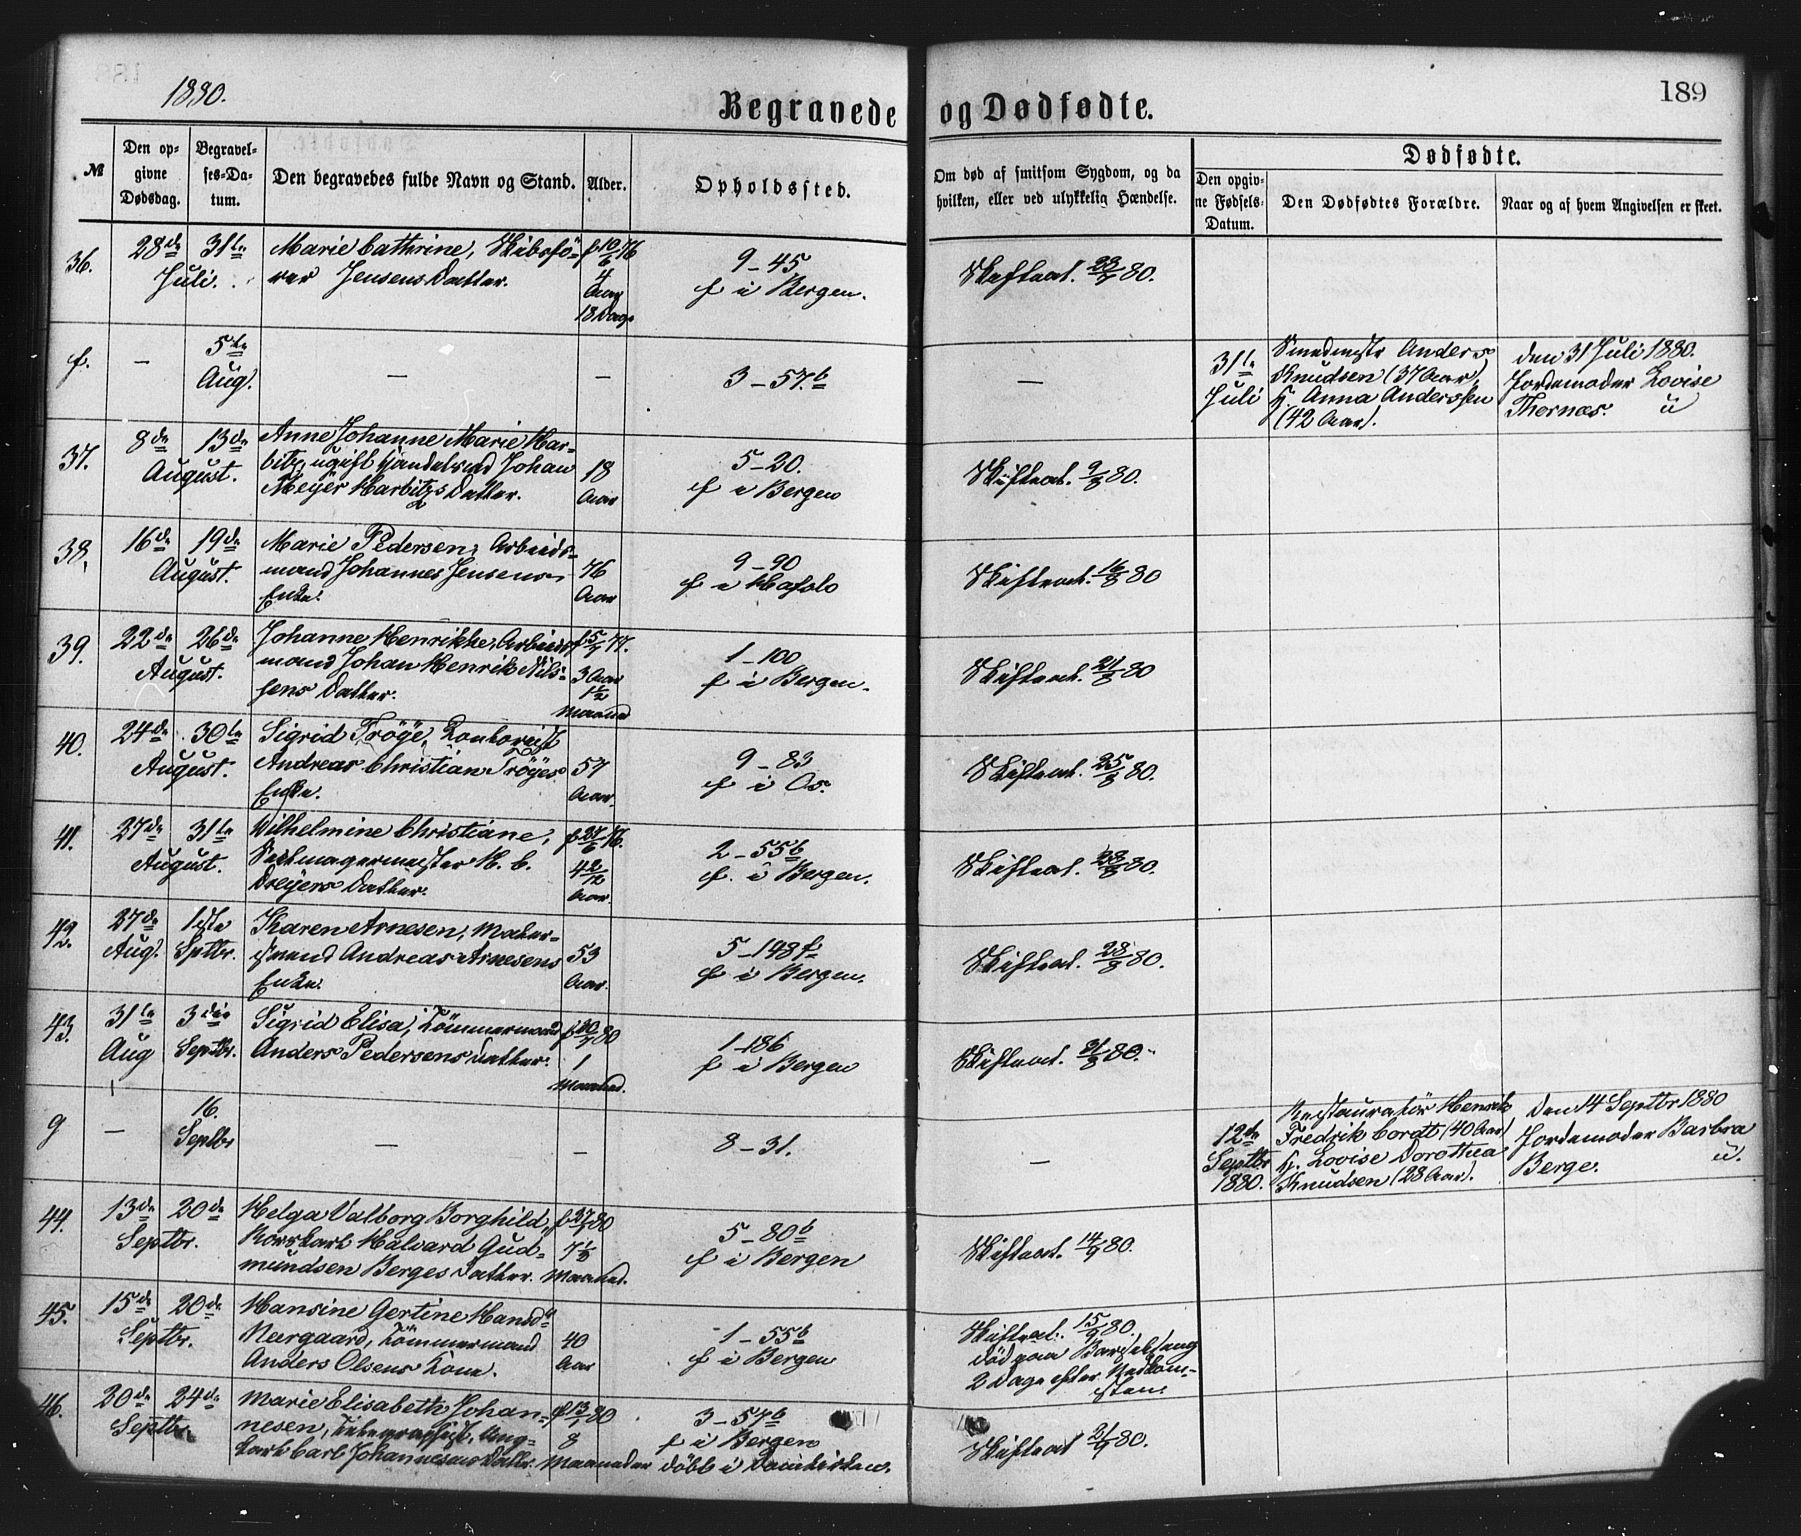 1880.
Begravede og Dødfødte.
189
№
Den opgivne Dødsdag.
Begravelses-Datum.
Den begravedes fulde Navn og Stand.
Alder.
Opholdssted.
Om død af smitsom Sygdom, og da hvilken, eller ved ulykkelig Hændelse.
Dødfødte.
Den opgivne Fødsels-Datum.
Den Dødfødtes Forældre.
Naar og af hvem Angivelsen er skeet.
36.
28de 31te
Juli.
Marie Cathrine, Skibsfö-
rer Jensens Datter.
f 10/6 76
4
Aar
18 Dage
9-45
f i Bergen.
Skifteat. 28/7 80.
f.
—
5te
Aug.
—
—
3-57.b
—
31te
Juli
Smedmstr Anders
Knudsen (37 Aar)
H. Anna Anderssen
(42 Aar).
den 31 Juli 1880.
Jordemoder Lovise
Thornæs. u
37.
8de 13de
August.
Anne Johanne Marie Har-
bitz, ugift Handelsmd Johan
Meyer Harbitzs Datter.
18
Aar
5-20.
f i Bergen
Skifteat. 9/8 80.
38.
16de 19de
August.
Marie Pedersen, Arbeids-
mand Johannes Jensens
Enke.
76
Aar
9-90
f i Hafslo
Skifteat. 16/8 80
39.
22de 26de
August.
Johanne Henrikke, Arbeids
mand Johan Henrik Nils-
sens Datter.
f 5/7 77.
3 Aar
1 1/2
Maaned
1-100
f i Bergen.
Skifteat. 21/8 80
40.
24de 30te
August.
Sigrid Tröye, Kontorist
Andreas Christian Tröyes
Enke.
57
Aar.
9-83
f i Os.
Skifteat. 25/8 80.
41.
27de 31te
August.
Wilhelmine Christiane,
Seilmagermester H. C.
Dreyers Datter.
f 27/6 76.
4 2/12
Aar
2-55b
f. i Bergen.
Skifteat. 28/8 80.
42.
27de 1ste
Aug. Septbr.
Karen Arnesen, Mater-
smand Andreas Arnesens
Enke.
53
Aar.
5-148f
f i Bergen.
Skifteat. 28/8 80.
43.
31te 3die
Aug Septbr.
Sigrid Elisa, Tömmermand
Anders Pedersens Datter.
f 30/7 80
1
Maaned.
1-186
f i Bergen
Skifteat. 31/8 80.
g
—
16.
Septbr
—
—
8-31.
—
12te
Septbr
1880.
Restauratör Henrik
Fredrik Cordt (40 Aar)
H. Lovise Dorothea
Knudsen (28 Aar).
Den 14 Septbr 1880
Jordemoder Barbra
Berge. u.
44.
13de 20de
Septbr.
Helga Valborg Borghild,
Korskarl Halvard Gud-
mundsen Berges Datter.
7 1/2
Maaned.
5-80b
f i Bergen
Skifteat. 14/9 80.
45.
15de 20de
Septbr.
Hansine Gertine Hansdr
Neergaard, Tömmermand
Anders Olsens Kone.
40
Aar
1-55b
f i Bergen
Skifteat. 15/9 80.
død paa Barselseng
2 Dage efter Nedkom-
sten.
46.
20de 24de
Septbr.
Marie Elisabeth Johan-
nesen, Ung-
karl Carl Johannesens Datter.
f 13/1 80
8
Maaneder
3-57b
f i Bergen
döbt i Domkirken.
Skifteat 21/9 80.